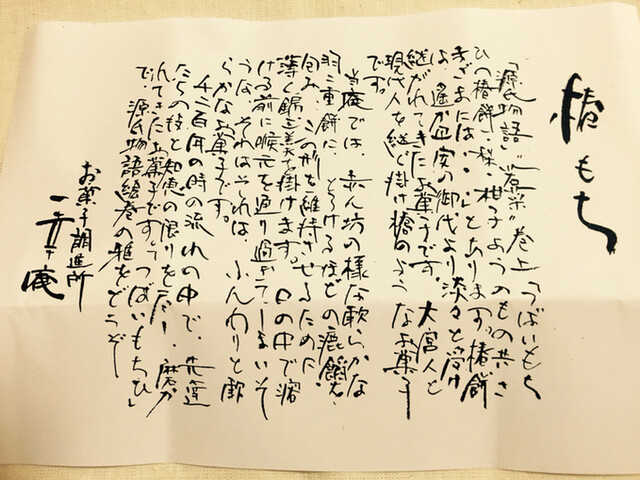 椿もち
「源氏物語」“若菜”巻上「つばいもち
ひ(椿餅)、梨、柑子ようのもの共、さ
まざまには、、、」とあります。椿餅
は、遙か皇室の御代より淡々と受け
継がれてきたお菓子です。大宮人と
現代人を継ぐ掛け橋のようなお菓子
です。
当庵では、赤ん坊の様な軟らかな
羽二重餅に、とろけるほどの漉餡を
包み、この形を維持させるために、
薄く錦玉羹を掛けます。口の中で溶
ける前に喉元を通り過ぎてしまいそ
うな、それはそれは、ふんわりと軟
らかなお菓子です。
千二百年の時の流れの中で、先達
たちの技と知恵の限りを尽し、磨か
れてきたお菓子です。「つばいもちひ」
で、源氏物語絵巻の雅をどうぞ
お菓子調進所
庵